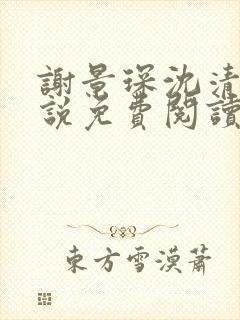 謝景琛沈清
說免費閱讀
東方雪漠蕭